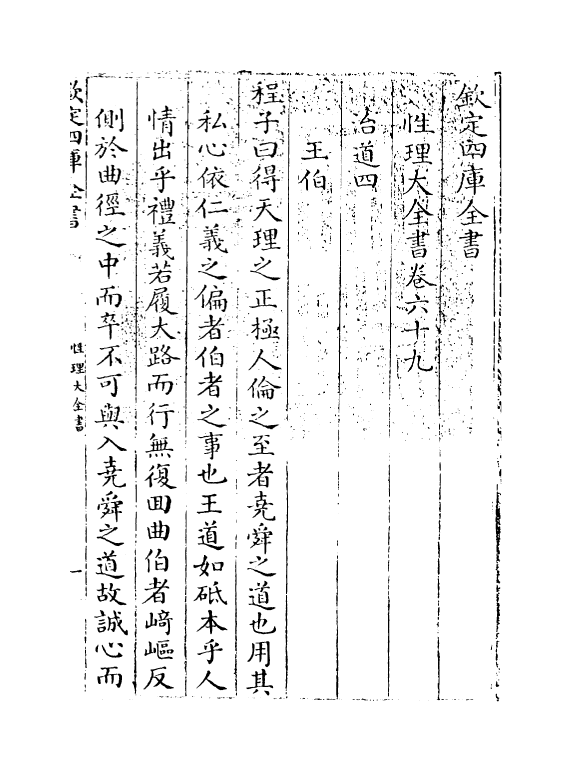 欽定四庫全書
性理大全書卷六十九
治道四
王伯
程子曰得天理之正極人倫之至者堯舜之道也用其
私心依仁義之偏者伯者之事也王道如砥本乎人
情出乎禮義若履大路而行無復回曲伯者﨑嶇反
側於曲徑之中而卒不可與入堯舜之道故誠心而
欽定四庫全書
性理大全書
一